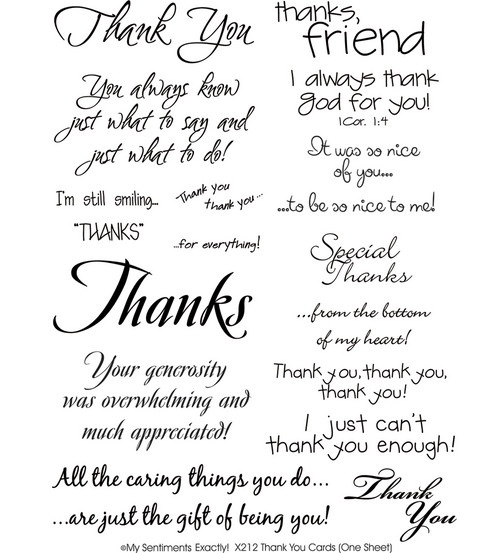 Thank You
thanks,
friend
You always know
just what to say and
just what to do!
I always thank
God for you!
1Cor. 1:4
It was so nice
of you...
...to be so nice to me!
I'm still smiling...
Thank you
thank you...
"THANKS"
...for everything!
Special
Thanks
Thanks
...from the bottom
of my heart!
Your generosity
was overwhelming and
much appreciated!
Thank you, thank you,
thank you!
I just can't
thank you enough!
All the caring things you do...
...are just the gift of being you!
Thank
You
©My Sentiments Exactly! X212 Thank You Cards (One Sheet)